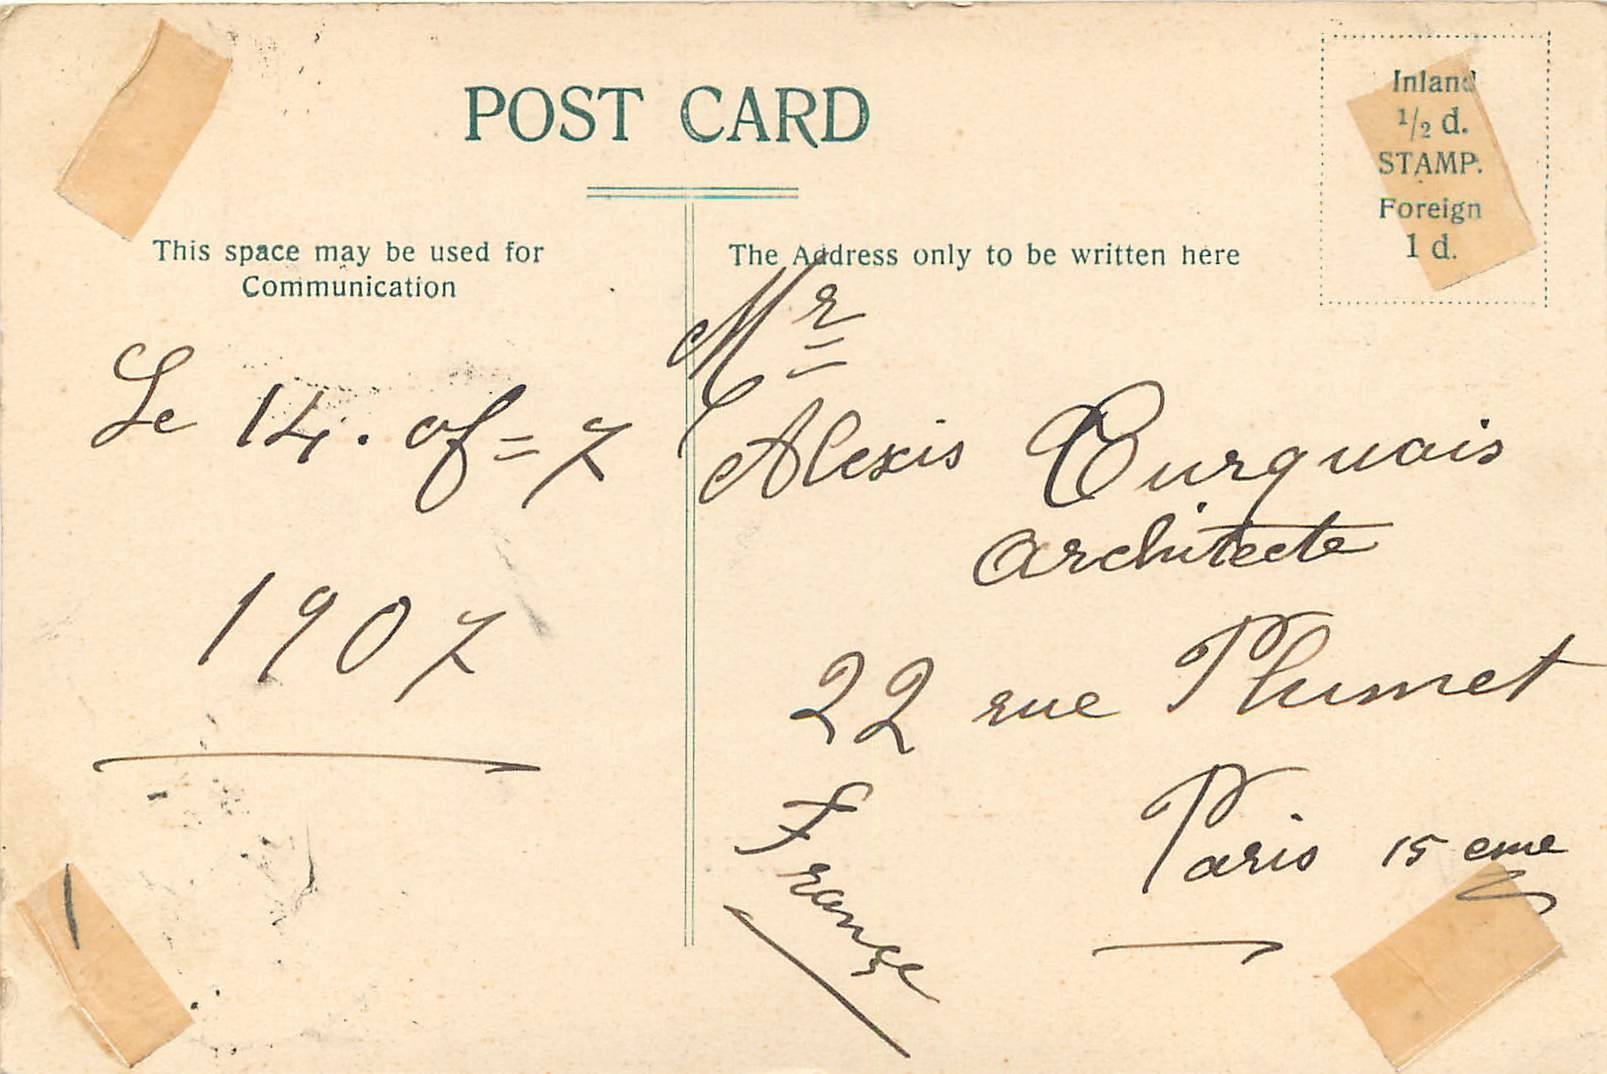 POST CARD
Inland
1/2 d.
STAMP.
Foreign
1 d.
This space may be used for
Communication
The Address only to be written here
Le 14. of = 7
1907
Mr
Alexis Turquais
architecte
22 rue Plumet
Paris 15 eme
France